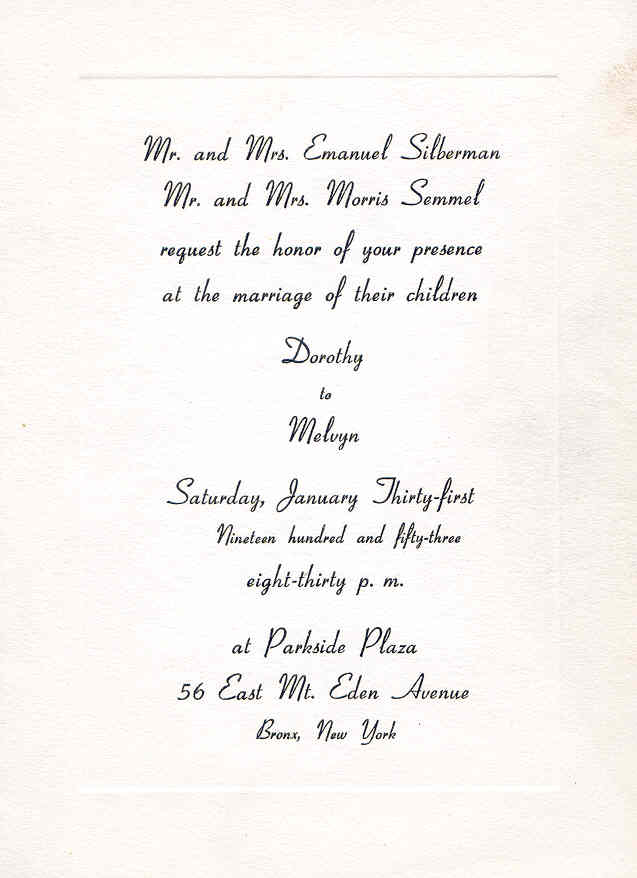 Mr. and Mrs. Emanuel Silberman
Mr. and Mrs. Morris Semmel
request the honor of your presence
at the marriage of their children
Dorothy
to
Melvyn
Saturday, January Thirty-first
Nineteen hundred and fifty-three
eight-thirty p. m.
at Parkside Plaza
56 East Mt. Eden Avenue
Bronx, New York